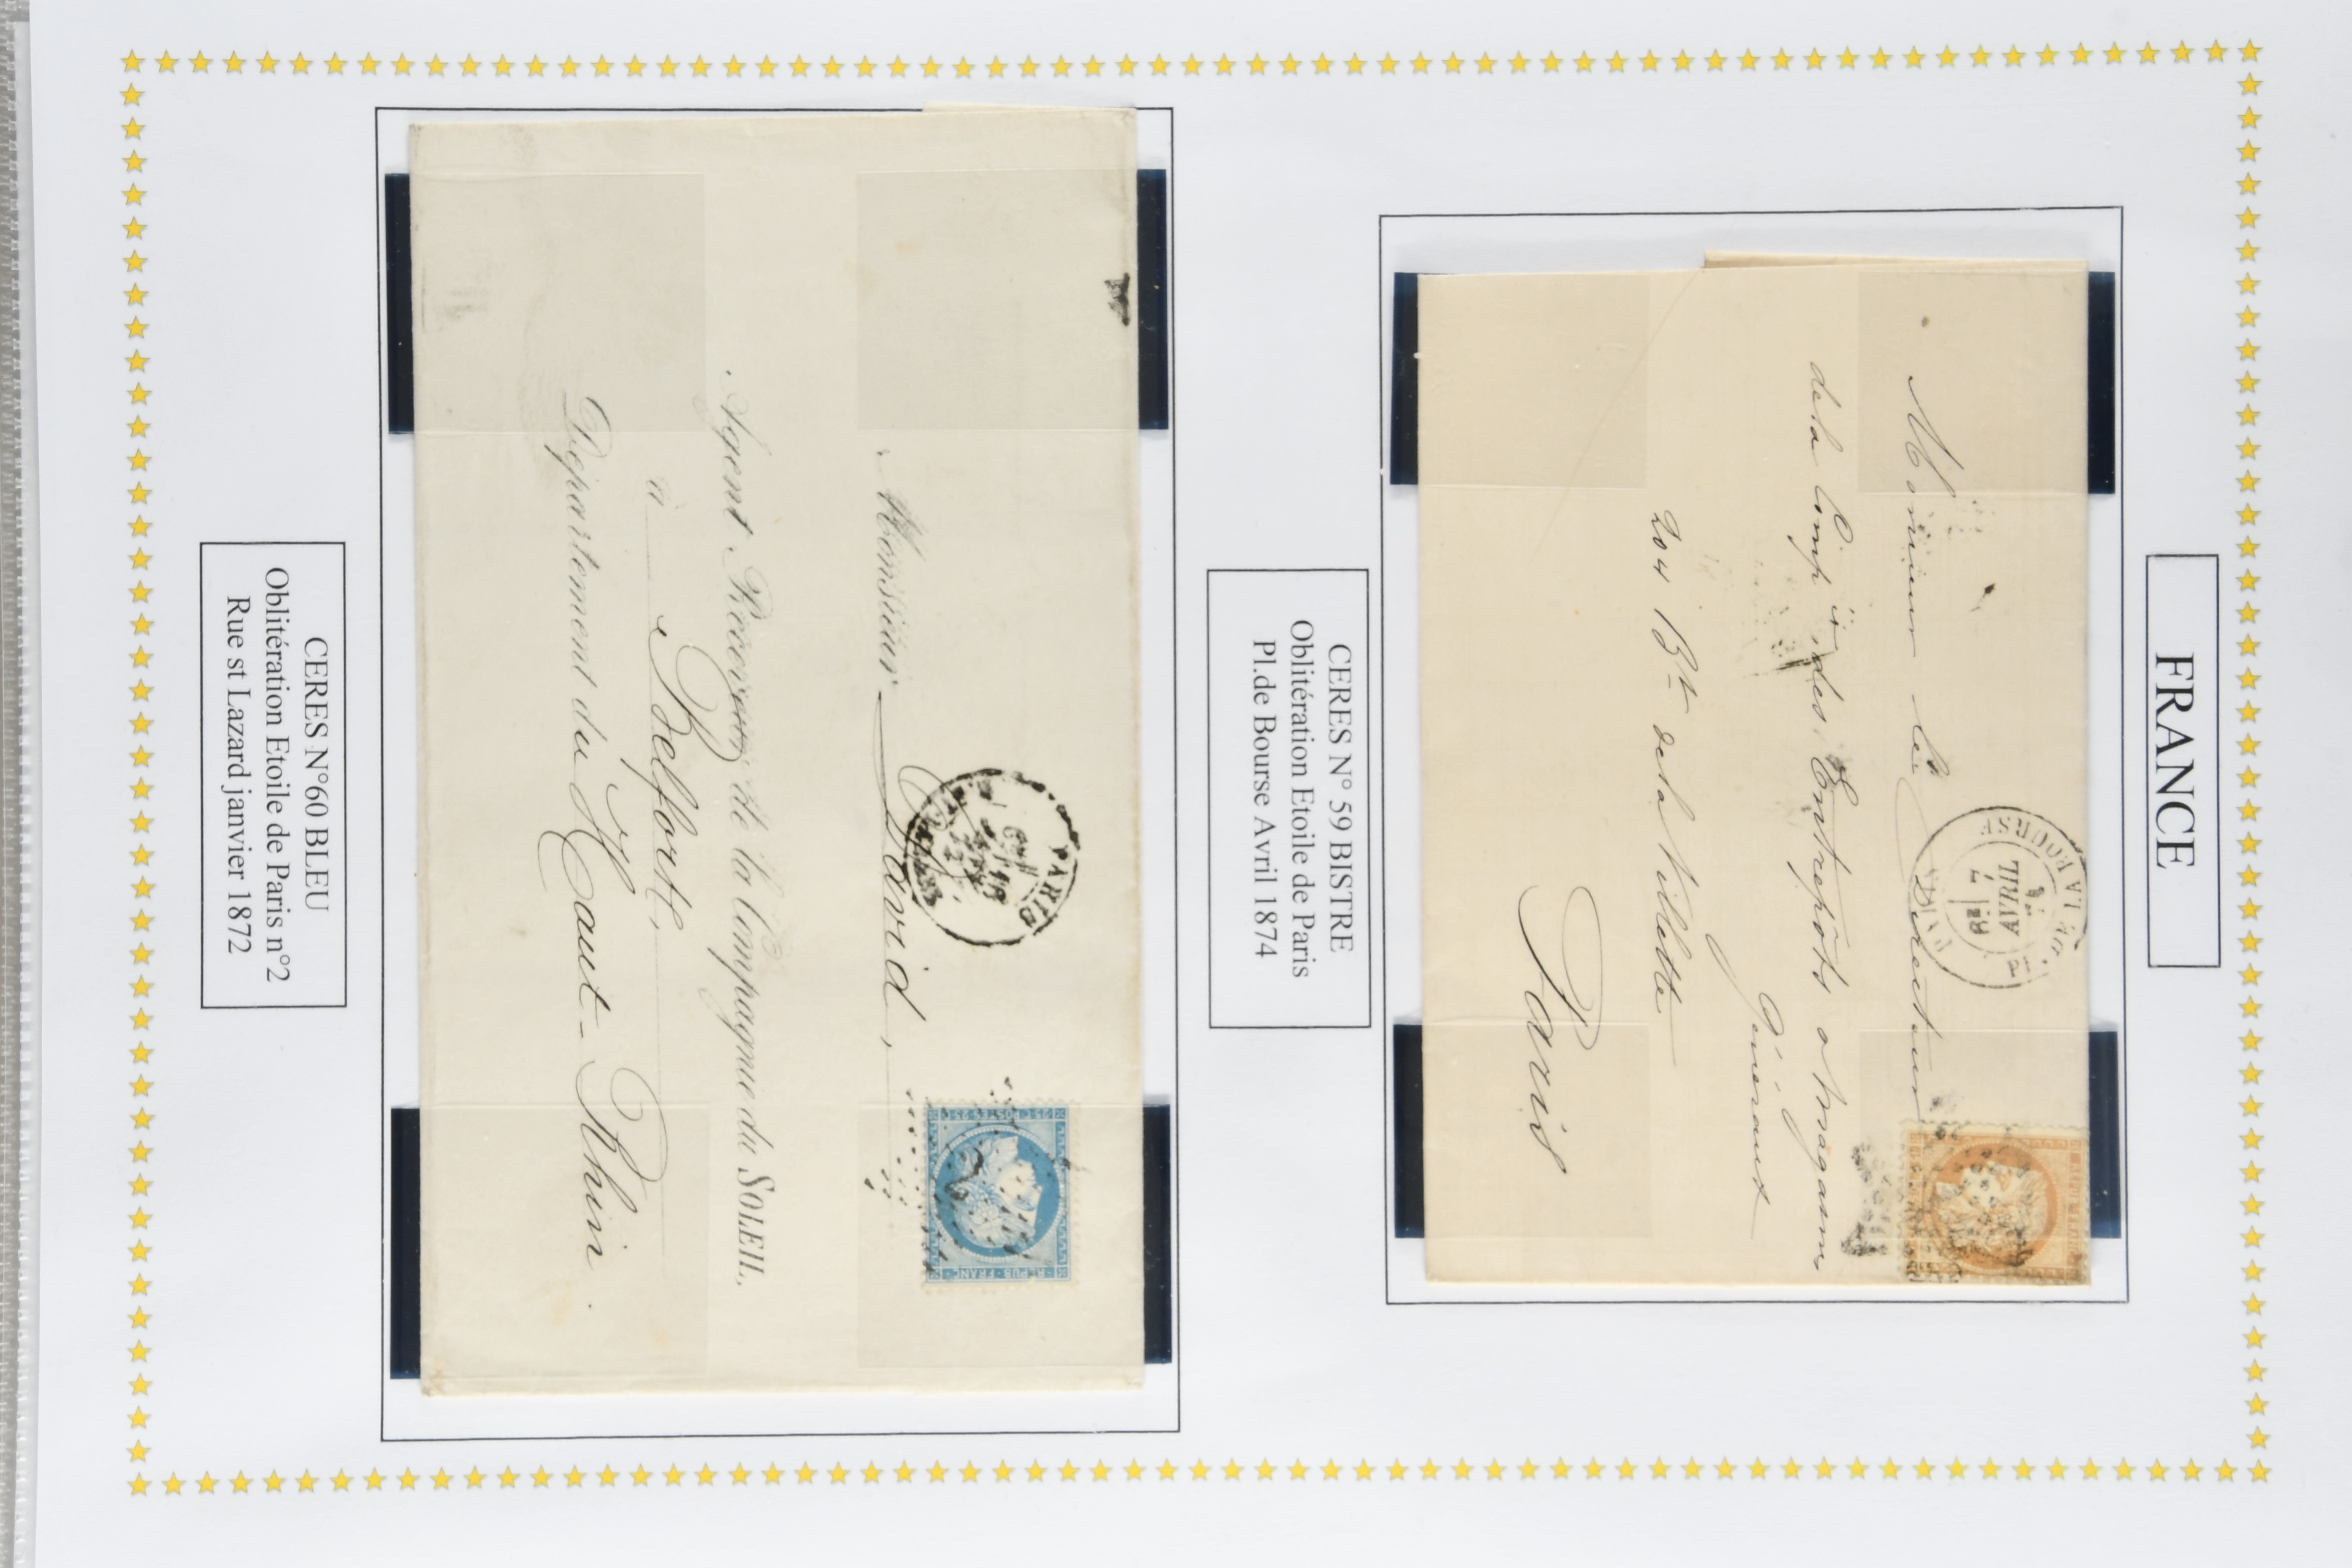 FRANCE
PARIS
PL. DE LA BOURSE
AVRIL
Monsieur le Directeur
de la Comp ie des Entrepôts & Magasins
Généraux
204 Bd de la Villette
Paris
CERES N° 59 BISTRE
Oblitération Etoile de Paris
Pl.de Bourse Avril 1874
PARIS
25 · C POSTES 25 · C
REPUB · FRANC ·
2
Monsieur David,
Agent Receveur de la Compagnie du SOLEIL,
à Belfort,
Département du Haut-Rhin.
CERES N°60 BLEU
Oblitération Etoile de Paris n°2
Rue st Lazard janvier 1872